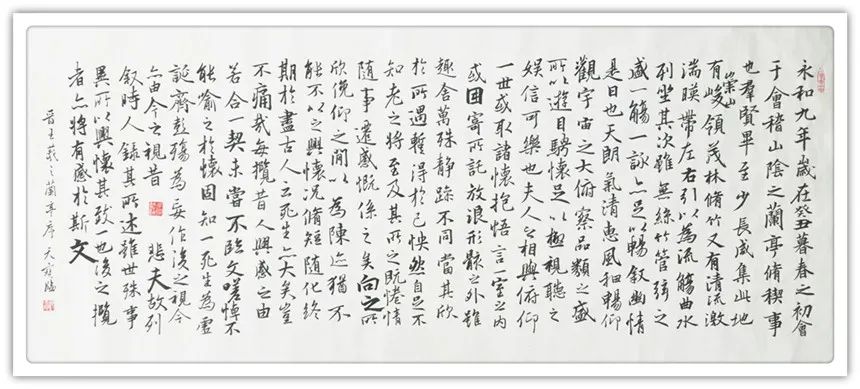 永和九年歲在癸丑暮春之初會
于會稽山陰之蘭亭脩稧事
也羣賢畢至少長咸集此地
有崇山峻領茂林脩竹又有清流激
湍暎帶左右引以為流觴曲水
列坐其次雖無絲竹管弦之
盛一觴一詠亦足以暢敘幽情
是日也天朗氣清惠風和暢仰
觀宇宙之大俯察品類之盛
所以遊目騁懷足以極視聽之
娛信可樂也夫人之相與俯仰
一世或取諸懷抱悟言一室之內
或因寄所託放浪形骸之外雖
趣舍萬殊靜躁不同當其欣
於所遇暫得於己怏然自足不
知老之將至及其所之既惓情
隨事遷感慨係之矣向之所
欣俛仰之間以為陳迹猶不
能不以之興懷況脩短隨化終
期於盡古人云死生亦大矣豈
不痛哉每攬昔人興感之由
若合一契未嘗不臨文嗟悼不
能喻之於懷固知一死生為虛
誕齊彭殤為妄作後之視今
亦由今之視昔 悲夫故列
敘時人錄其所述雖世殊事
異所以興懷其致一也後之攬
者亦將有感於斯文
晉王羲之蘭亭序 天 臨